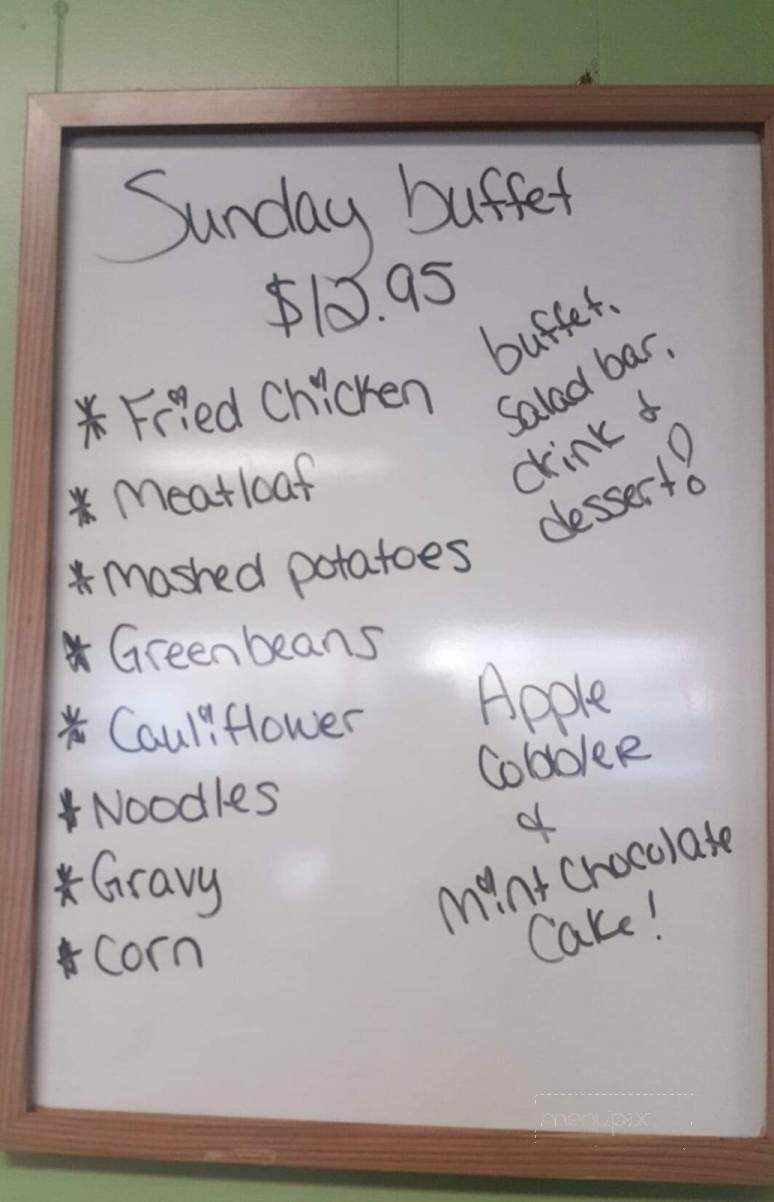 Sunday buffet
$12.95
buffet,
salad bar,
drink &
dessert!
* Fried Chicken
* Meatloaf
* Mashed potatoes
* Greenbeans
* Cauliflower
* Noodles
* Gravy
* Corn
Apple
Cobbler
&
Mint Chocolate
Cake!
menupix